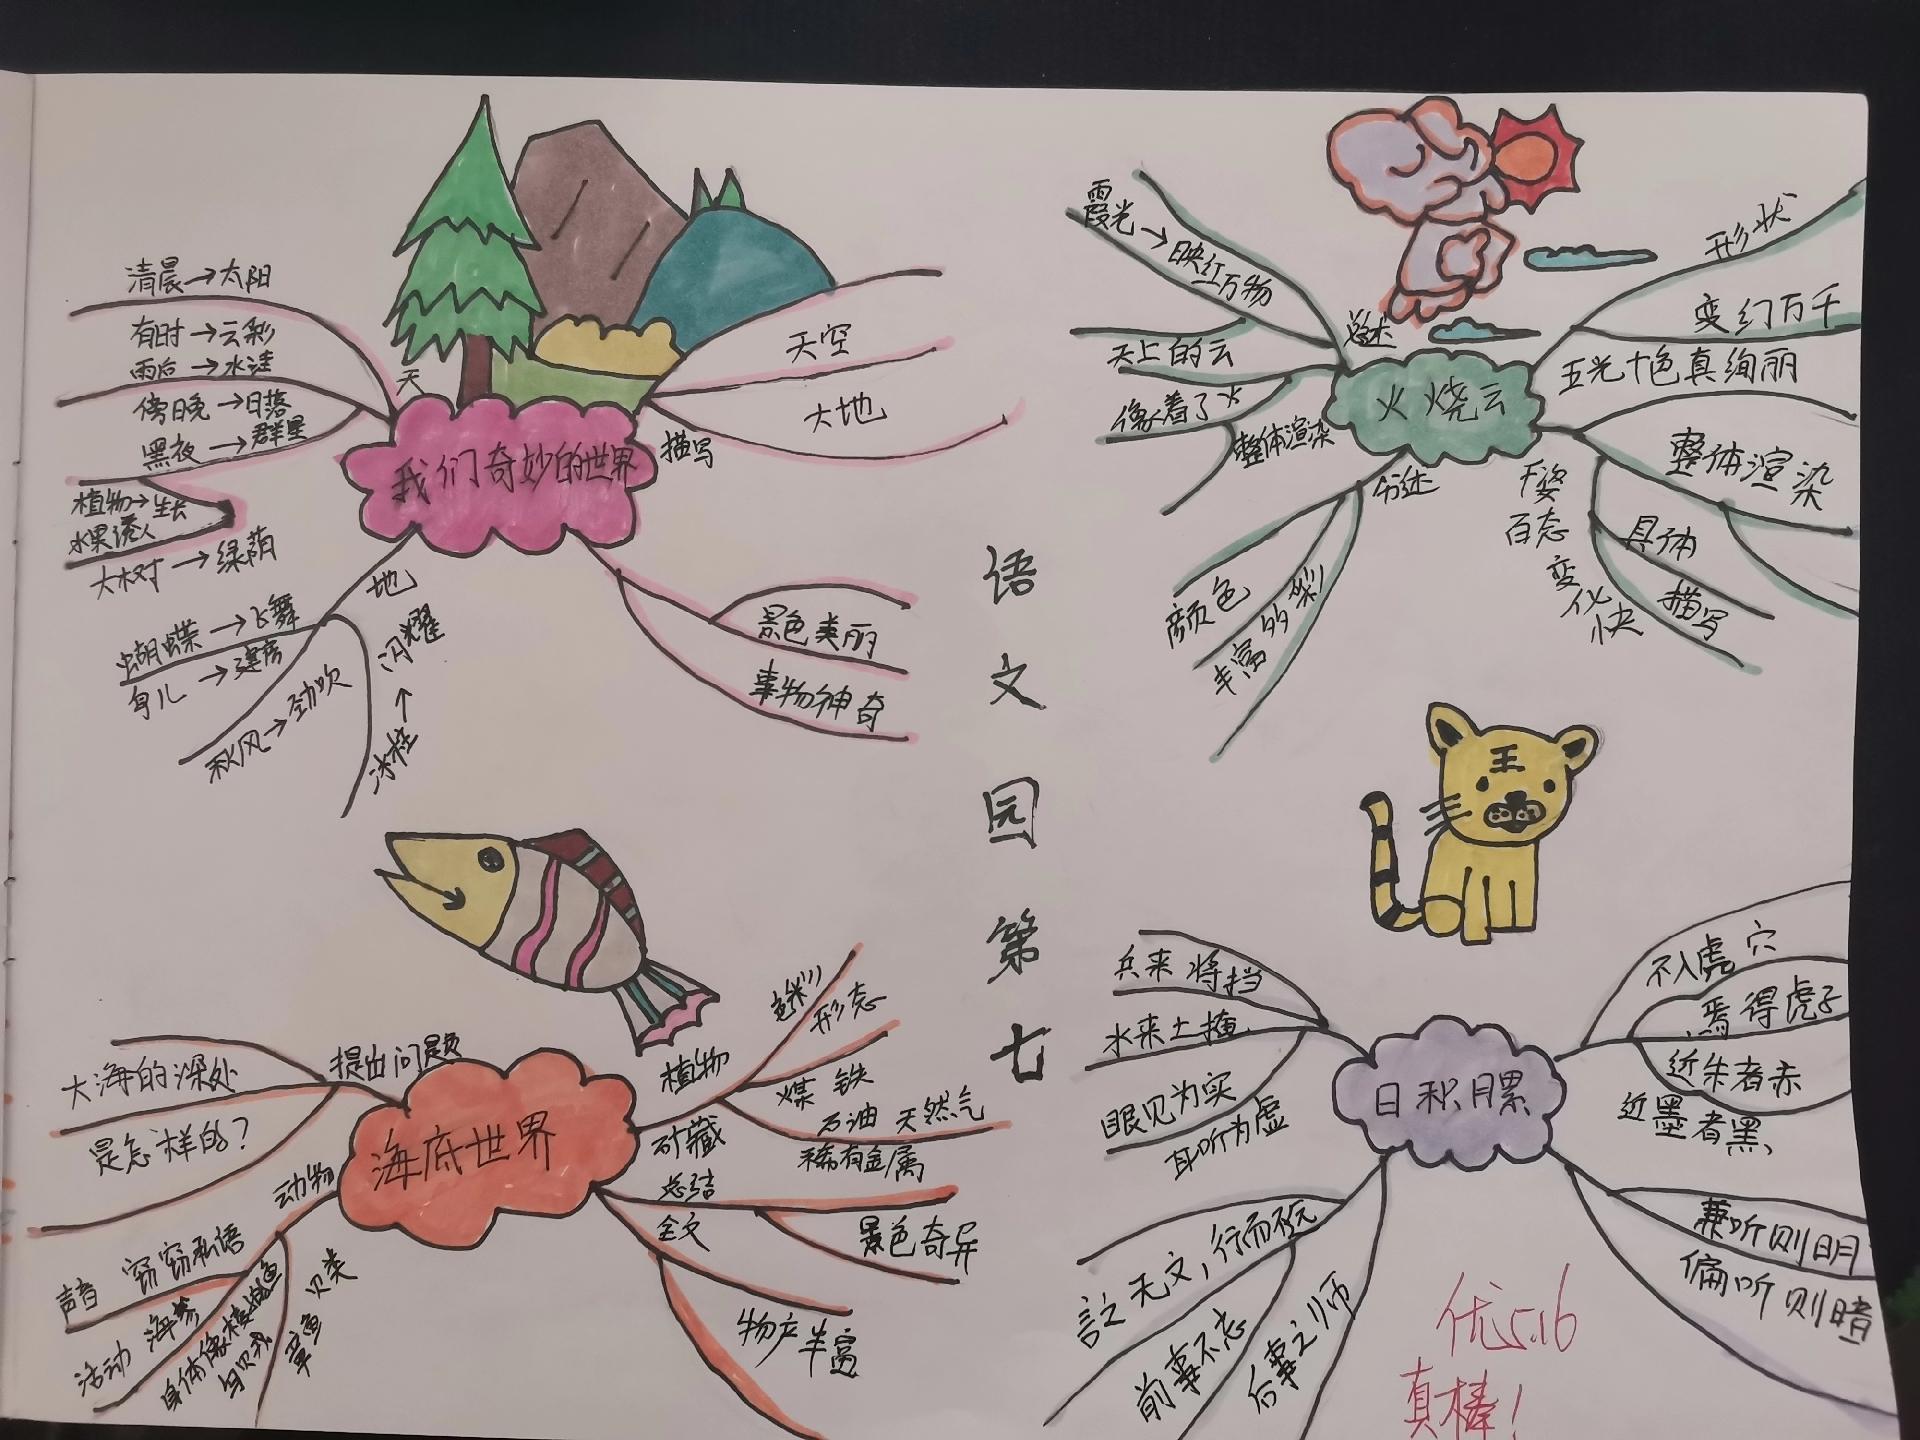 清晨→太阳
有时→云彩
雨后→水洼
傍晚→日落
黑夜→群星
天
植物→生长
水果诱人
大树→绿荫
地
蝴蝶→飞舞
鸟儿→建房
秋风→劲吹
冰柱→闪耀
我们奇妙的世界
描写
天空
大地
景色美丽
事物神奇
语文园第七
霞光→映红万物
总述
天上的云
像着了火
整体渲染
火烧云
分述
颜色
丰富的彩
形状
变幻万千
五光十色真绚丽
整体渲染
千姿
百态
变化快
具体
描写
提出问题
大海的深处
是怎样的?
动物
声音 窃窃私语
活动 海参
身体像梭子鱼
章鱼 贝类
海底世界
植物
形态
矿藏
煤 铁
石油 天然气
稀有金属
总结
全文
景色奇异
物产丰富
兵来将挡
水来土掩
眼见为实
耳听为虚
言之无文,行而不远
前事不忘
后事之师
日积月累
不入虎穴
焉得虎子
近朱者赤
近墨者黑
兼听则明
偏听则暗
优5.16
真棒!